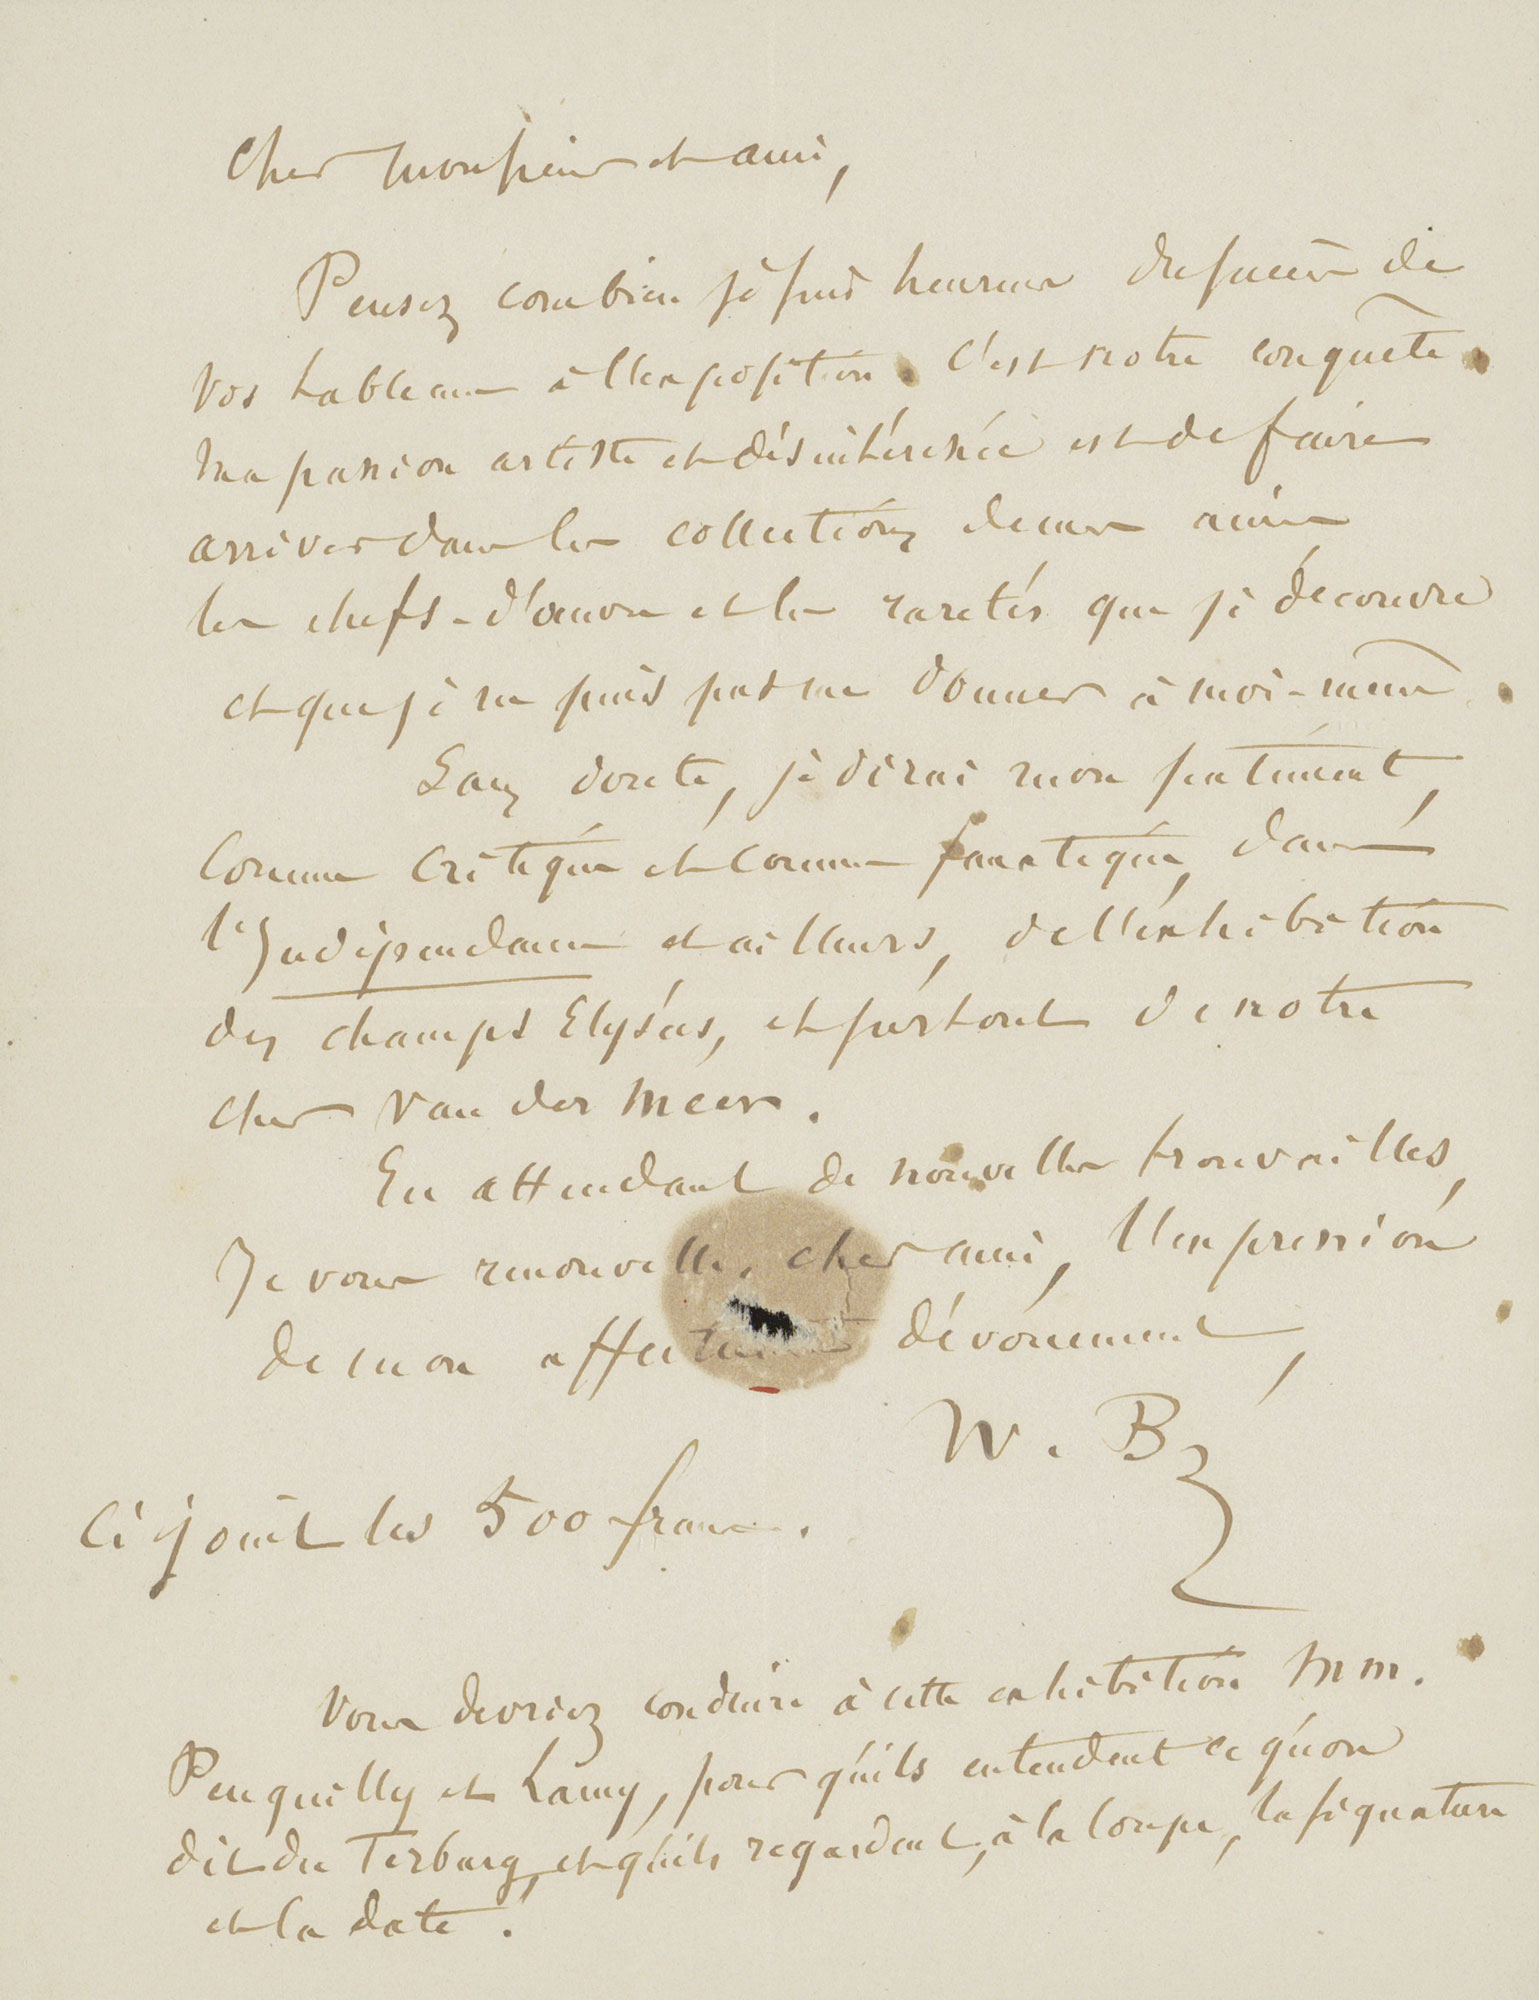 Cher monsieur et ami,
Pensez combien je suis heureux du succès de
vos tableaux à l'exposition. C'est notre conquête.
Ma passion artiste et désintéressée est de faire
arriver dans les collections de mes amis
les chefs-d'œuvre et les raretés que je découvre
et que je ne puis pas me donner à moi-même.
Sans doute, je dirai mon sentiment,
comme critique et comme fanatique, dans
l'Indépendance et ailleurs, de l'exhibition
des champs Elysées, et surtout de notre
cher Van der Meer.
En attendant de nouvelles trouvailles,
Je vous renouvelle, cher ami, l'expression
de mon affectueux dévouement,
W. B
Ci joint les 500 francs.
Vous devriez conduire à cette exhibition MM.
Penguilly et Lamy, pour qu'ils entendent ce qu'on
dit du Terburg, et qu'ils regardent, à la loupe, la signature
et la date.